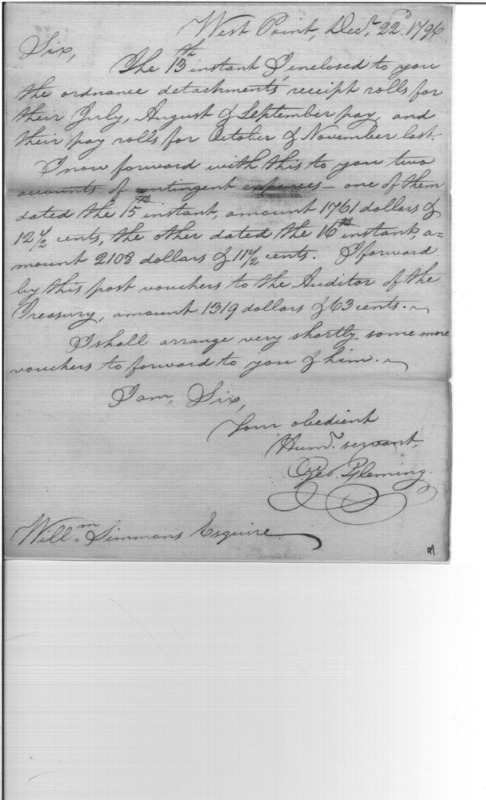 West Point, Decr. 22d. 1796
Sir,
The 13th instant I enclosed to you
the ordnance detachments receipt rolls for
their July, August & September pay, and
their pay rolls for October & November last.
I now forward with this to you two
accounts of contingent expences – one of them
dated the 15th instant, amount 1761 dollars &
12 1/2 cents, the other dated the 16th instant, a-
mount 2108 dollars & 11 1/2 cents. I forward
by this post vouchers to the Auditor of the
Treasury, amount 1319 dollars & 63 cents.
I shall arrange very shortly some more
vouchers to forward to you & him.
I am, Sir,
Your obedient
Humt. servant,
Geo. Fleming.
Willm. Simmons Esquire